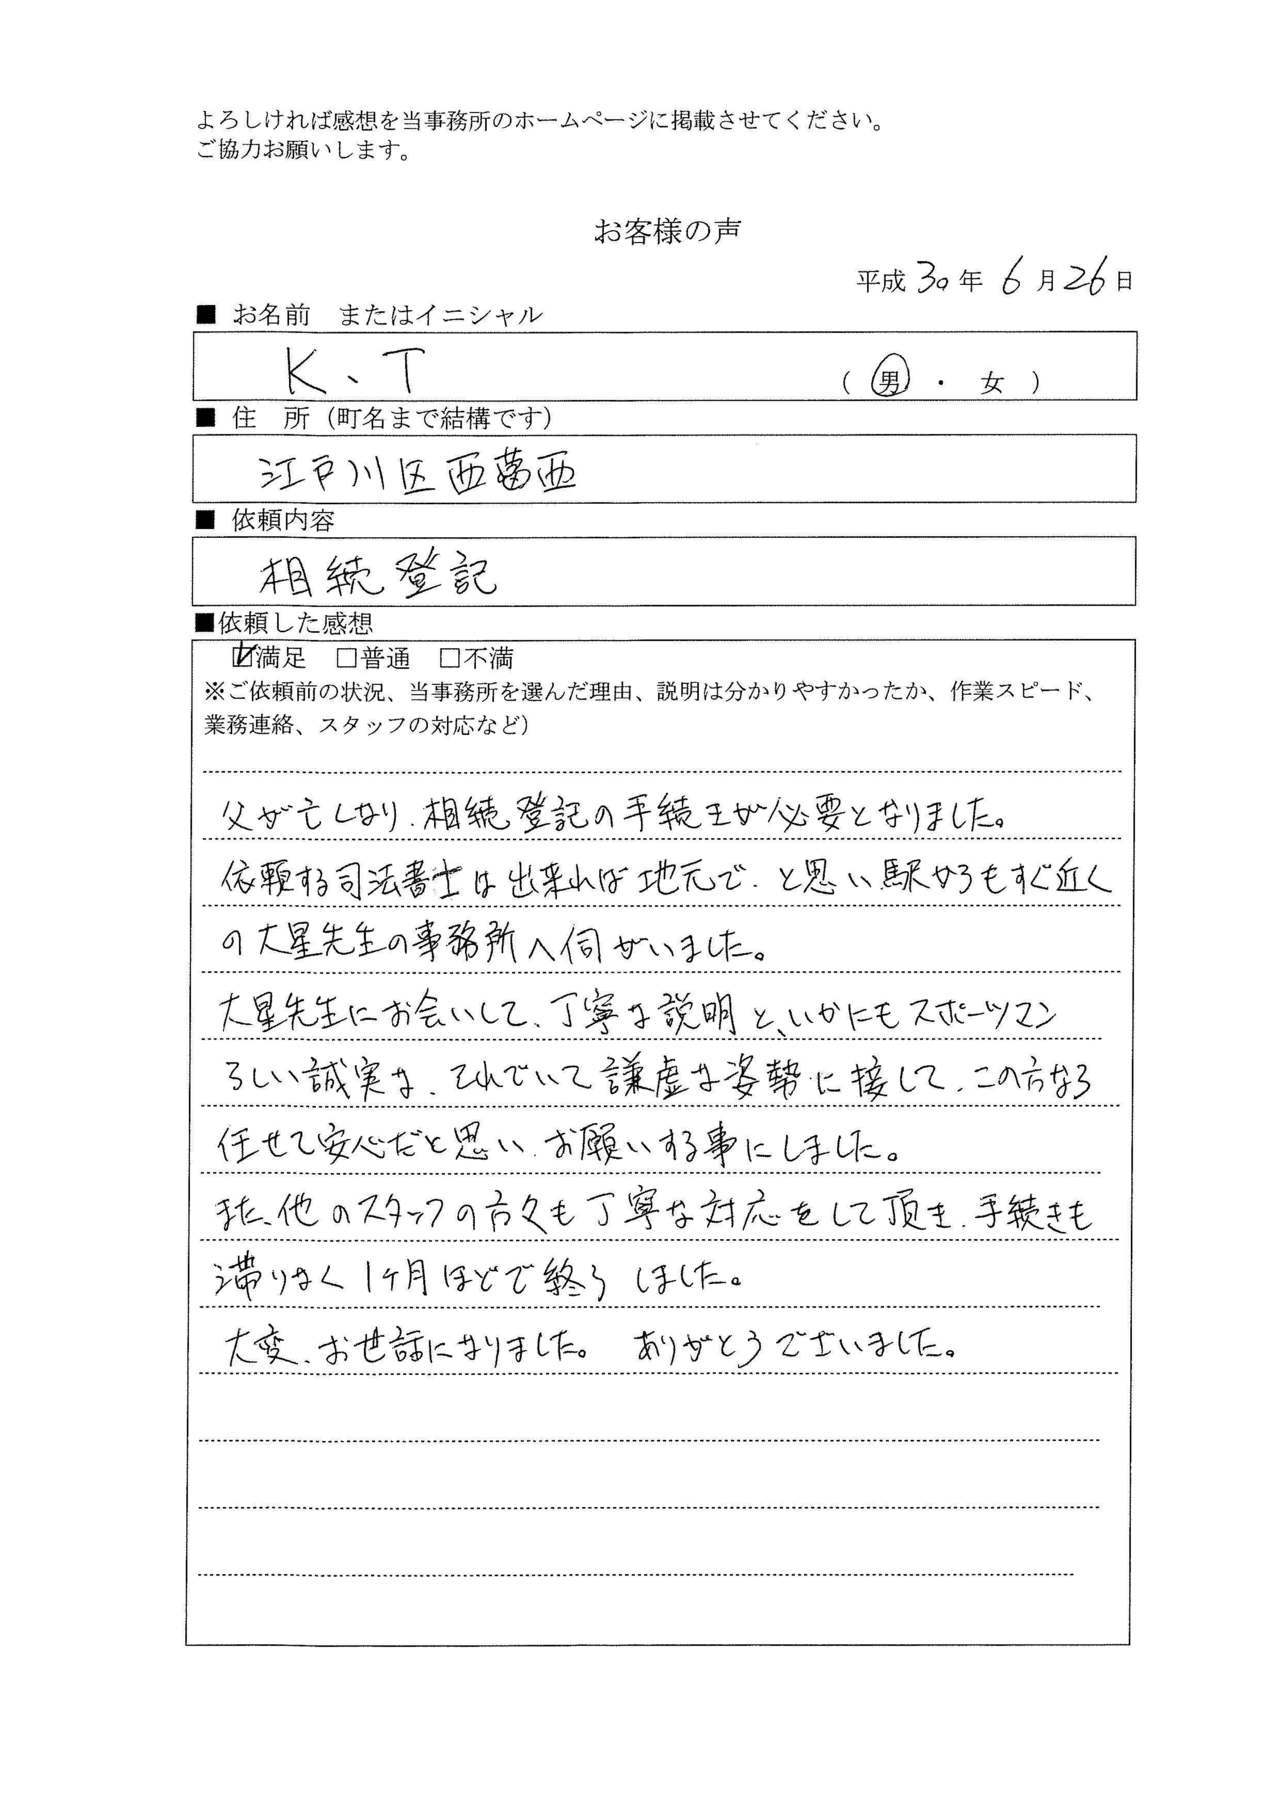 よろしければ感想を当事務所のホームページに掲載させてください。
ご協力お願いします。
お客様の声
平成 30 年 6 月 26 日
■ お名前　またはイニシャル
K、T　（ 男 ・ 女 ）
■ 住　所（町名まで結構です）
江戸川区西葛西
■ 依頼内容
相続登記
■依頼した感想
☑満足　□普通　□不満
※ご依頼前の状況、当事務所を選んだ理由、説明は分かりやすかったか、作業スピード、
業務連絡、スタッフの対応など）
父が亡くなり、相続登記の手続きが必要となりました。
依頼する司法書士は出来れば地元で、と思い駅からもすぐ近く
の大星先生の事務所へ伺がいました。
大星先生にお会いして、丁寧な説明と、いかにもスポーツマン
らしい誠実な、それでいて謙虚な姿勢に接して、この方なら
任せて安心だと思い、お願いする事にしました。
また、他のスタッフの方々も丁寧な対応をして頂き、手続きも
滞りなく1ヶ月ほどで終了しました。
大変、お世話になりました。　ありがとうございました。